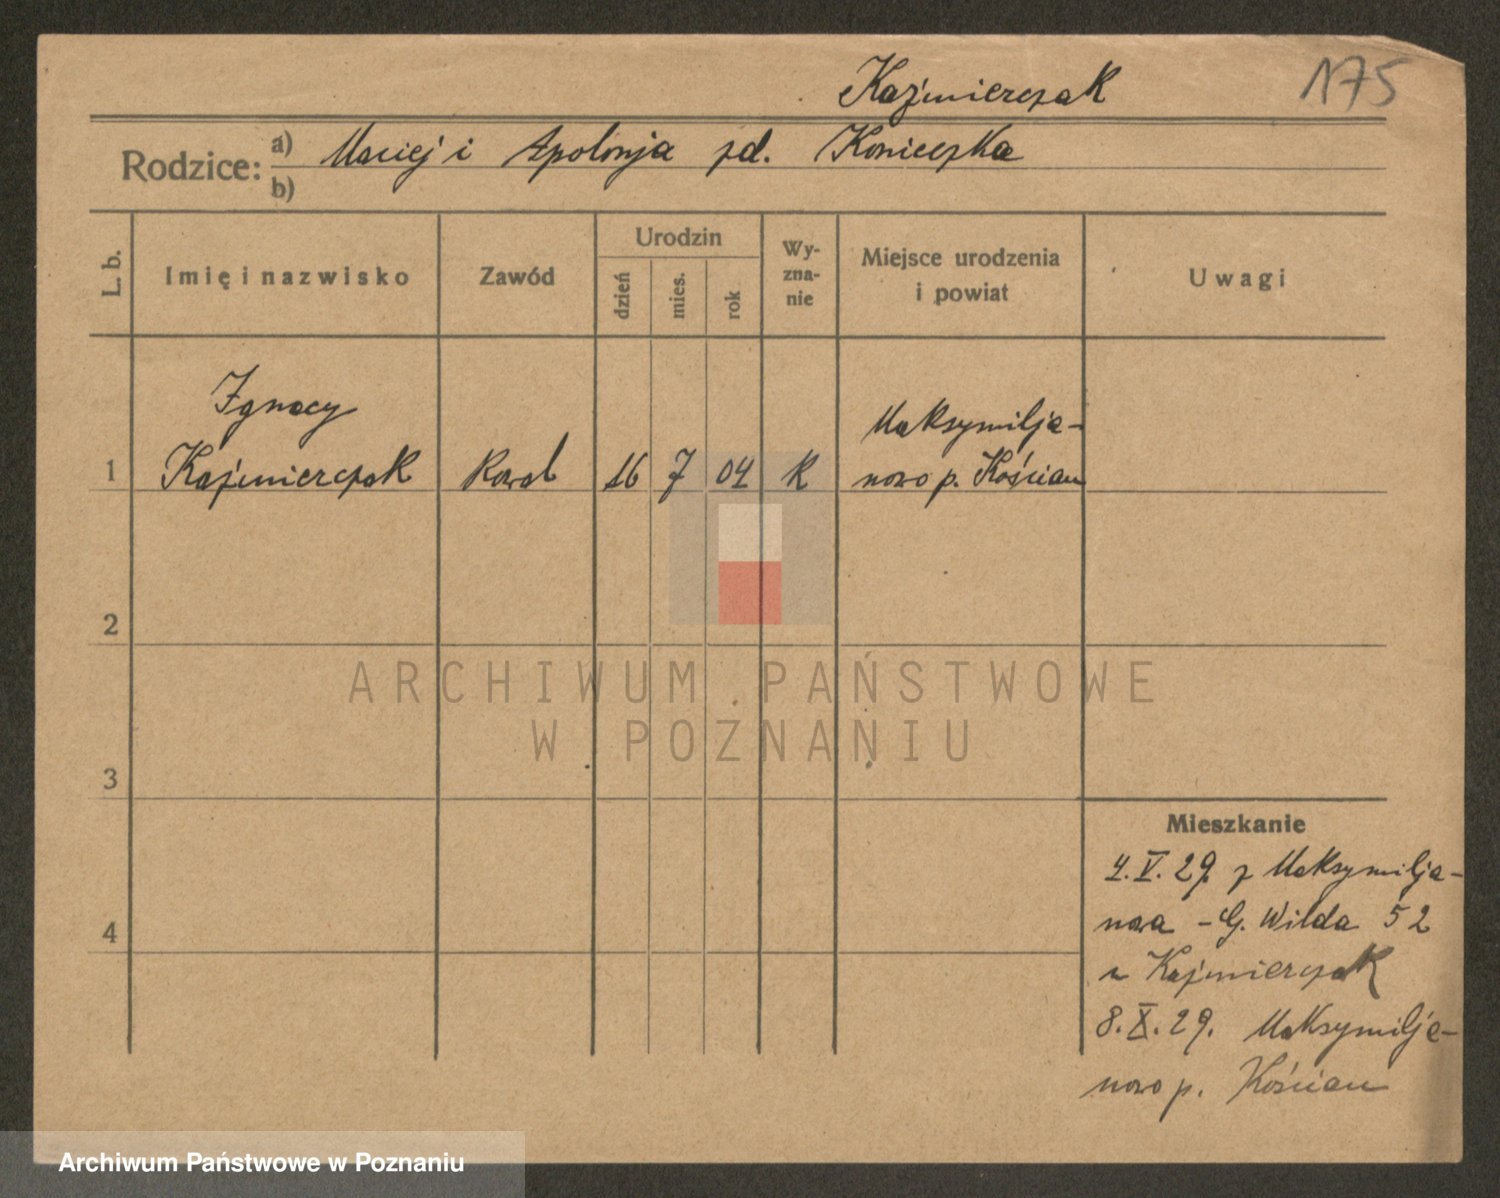 Kaźmierczak
175
Rodzice: a) Maciej i Apolonja zd. Konieczka
b)
L. b.
Imię i nazwisko
Zawód
Urodzin
dzień
mies.
rok
Wy-
zna-
nie
Miejsce urodzenia
i powiat
Uwagi
1
Ignacy
Kaźmierczak
Kowal
16
7
04
K
Maksymilja-
nowo p. Kościan
2
3
4
Mieszkanie
4.V.29 z Maksymilja-
nowa - G. Wilda 52
u Kaźmierczak
8.X.29. Maksymilja-
nowo p. Kościan
ARCHIWUM PAŃSTWOWE
W POZNANIU
Archiwum Państwowe w Poznaniu